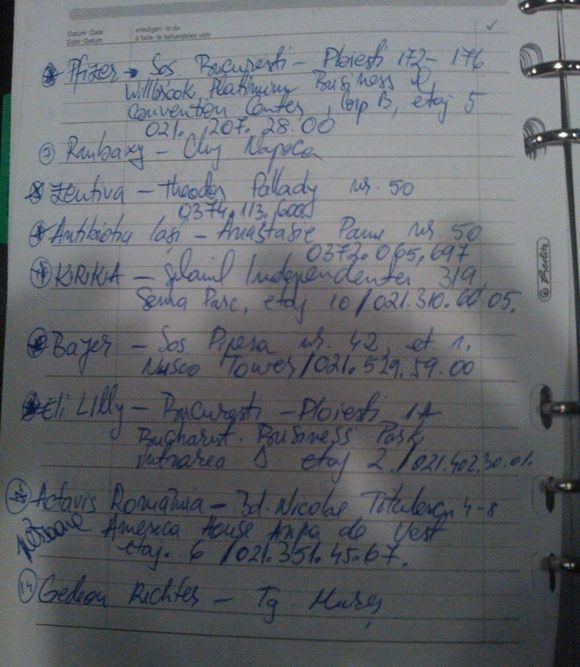 Datum · Date erledigen · to do
Date · Datum à faire · te behandelen · vóór
Pfizer → Sos. Bucuresti – Ploiesti 172 – 176
Willbrook Platinum Business &
Convention Center, Corp B, etaj 5
021. 207. 28.00
7 Ranbaxy – Cluj Napoca
Zentiva – Theodor Pallady nr. 50
0374.113.
Antibiotice Iași – Anastasie Panu nr. 50
0372.065.697
KRKA – Splaiul Independentei 319
Sema Parc, etaj 10 / 021.310.66.05.
Bayer – Sos. Pipera nr. 42, et 1.
Nusco Tower / 021.529.59.00
Eli Lilly – Bucuresti – Ploiesti 1A
Bucharest Business Park
intrarea etaj 2 / 021.402.30.01.
Actavis România – Bd. Nicolae Titulescu 4-8
America House Aripa de Vest
etaj. 6 / 021.351.45.67.
14 Gedeon Richter – Tg. Mureș